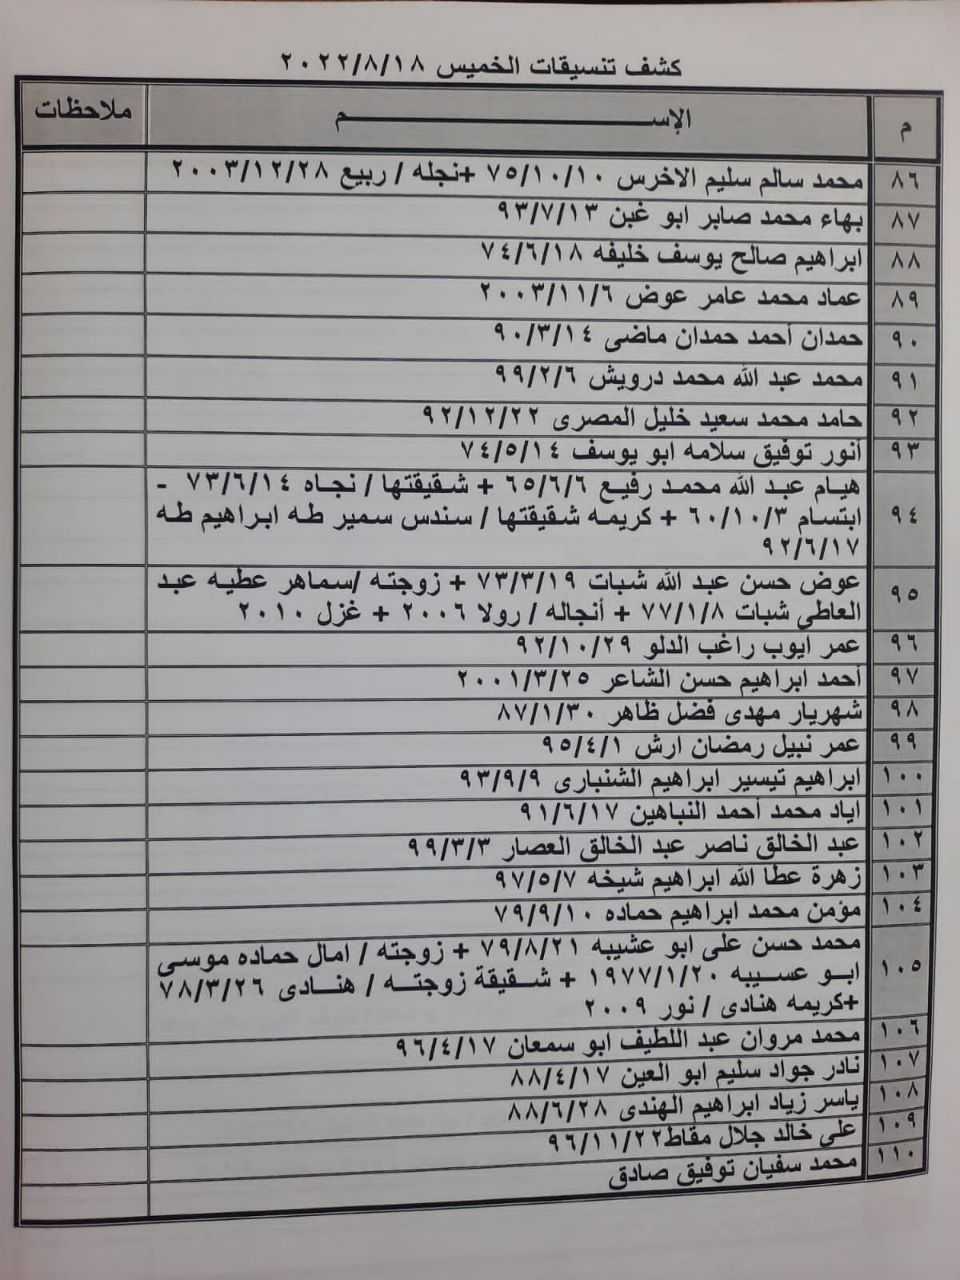 كشف تنسيقات الخميس ٢٠٢٢/٨/١٨
م الإســـــم ملاحظات
٨٦ محمد سالم سليم الاخرس ٧٥/١٠/١٠ +نجله / ربيع ٢٠٠٣/١٢/٢٨
٨٧ بهاء محمد صابر ابو غبن ٩٣/٧/١٣
٨٨ ابراهيم صالح يوسف خليفه ٧٤/٦/١٨
٨٩ عماد محمد عامر عوض ٢٠٠٣/١١/٦
٩٠ حمدان أحمد حمدان ماضى ٩٠/٣/١٤
٩١ محمد عبد الله محمد درويش ٩٩/٢/٦
٩٢ حامد محمد سعيد خليل المصرى ٩٢/١٢/٢٢
٩٣ أنور توفيق سلامه ابو يوسف ٧٤/٥/١٤
٩٤ هيام عبد الله محمد رفيع ٦٥/٦/٦ + شقيقتها / نجاه ٧٣/٦/١٤ -
ابتسام ٦٠/١٠/٣ + كريمه شقيقتها / سندس سمير طه ابراهيم طه
٩٢/٦/١٧
٩٥ عوض حسن عبد الله شبات ٧٣/٣/١٩ + زوجته /سماهر عطيه عبد
العاطي شبات ٧٧/١/٨ + أنجاله / رولا ٢٠٠٦ + غزل ٢٠١٠
٩٦ عمر ايوب راغب الدلو ٩٢/١٠/٢٩
٩٧ أحمد ابراهيم حسن الشاعر ٢٠٠١/٣/٢٥
٩٨ شهريار مهدى فضل ظاهر ٨٧/١/٣٠
٩٩ عمر نبيل رمضان ارش ٩٥/٤/١
١٠٠ ابراهيم تيسير ابراهيم الشنبارى ٩٣/٩/٩
١٠١ اياد محمد أحمد النباهين ٩١/٦/١٧
١٠٢ عبد الخالق ناصر عبد الخالق العصار ٩٩/٣/٣
١٠٣ زهرة عطا الله ابراهيم شيخه ٩٧/٥/٧
١٠٤ مؤمن محمد ابراهيم حماده ٧٩/٩/١٠
١٠٥ محمد حسن على ابو عشيبه ٧٩/٨/٢١ + زوجته / امال حماده موسى
ابو عسيبه ١٩٧٧/١/٢٠ + شقيقة زوجته / هنادى ٧٨/٣/٢٦
+كريمه هنادى / نور ٢٠٠٩
١٠٦ محمد مروان عبد اللطيف ابو سمعان ٩٦/٤/١٧
١٠٧ نادر جواد سليم ابو العين ٨٨/٤/١٧
١٠٨ ياسر زياد ابراهيم الهندى ٨٨/٦/٢٨
١٠٩ على خالد جلال مقاط٩٦/١١/٢٢
١١٠ محمد سفيان توفيق صادق